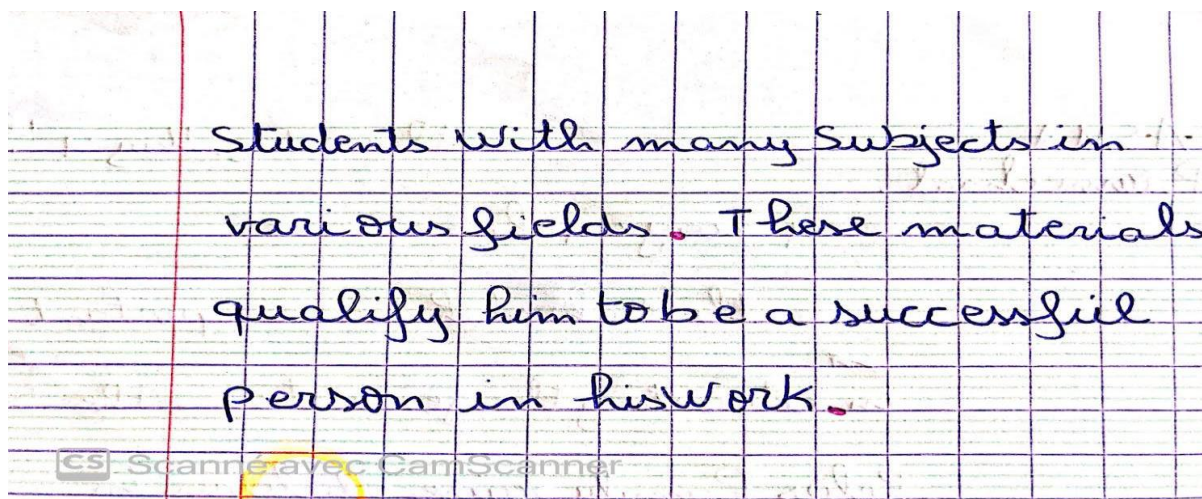 Students With many Subjects in
various fields. These materials
qualify him to be a successful
person in his work.
CS Scanné avec CamScanner